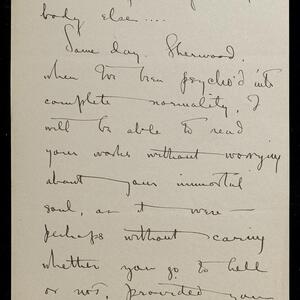 body else....
Some day, Sherwood,
when I've been psycho'd into
complete normality, I
will be able to read
your works without worrying
about your immortal
soul, as it were –
perhaps without caring
whether you go to hell
or not, provided you